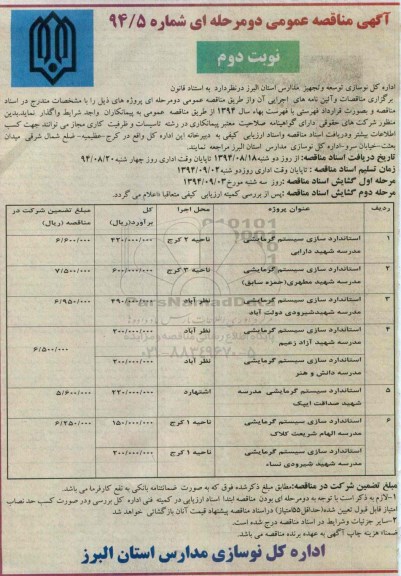 آگهی مناقصه عمومی دومرحله ای شماره ۹۴/۵
نوبت دوم
اداره کل نوسازی توسعه وتجهیز مدارس استان البرز درنظردارد به استناد قانون
برگزاری مناقصات وآئین نامه های اجرایی آن واز طریق مناقصه عمومی دومرحله ای پروژه های ذیل را با مشخصات مندرج در اسناد
مناقصه و بصورت قرارداد فهرستی با فهرست بهاء سال ۱۳۹۴ از طریق مناقصه عمومی به پیمانکاران واجد شرایط واگذار نماید.بدین
منظور شرکت های حقوقی دارای گواهینامه صلاحیت معتبر پیمانکاری در رشته تاسیسات و ظرفیت کاری مجاز می توانند جهت کسب
اطلاعات بیشتر ودریافت اسناد مناقصه واسناد ارزیابی کیفی به دبیرخانه این اداره کل واقع در کرج-عظیمیه- ضلع شمال شرقی میدان
بعثت-خیابان سرو-اداره کل نوسازی مدارس استان البرز مراجعه نمایند.
تاریخ دریافت اسناد مناقصه: از روز دو شنبه ۱۳۹۴/۰۸/۱۸ تاپایان وقت اداری روز چهار شنبه ۹۴/۰۸/۲۰
زمان تسلیم اسناد مناقصه : تاپایان وقت اداری روزدو شنبه ۱۳۹۴/۰۹/۰۲
مرحله اول گشایش اسناد مناقصه :روز سه شنبه مورخ ۱۳۹۴/۰۹/۰۳
مرحله دوم گشایش اسناد مناقصه :پس از بررسی کمیته ارزیابی کیفی متعاقبا «اعلام می گردد.
ردیف عنوان پروژه محل اجرا کل برآورد(ریال) مبلغ تضمین شرکت در مناقصه (ریال)
۱ استاندارد سازی سیستم گرمایشی مدرسه شهید دارابی ناحیه ۲ کرج ۴۲۰/۰۰۰/۰۰۰ ۶/۶۰۰/۰۰۰
۲ استاندارد سازی سیستم گرمایشی مدرسه شهید مطهری(حمزه سابق) ناحیه ۲ کرج ۶۰۰/۰۰۰/۰۰۰ ۷/۵۰۰/۰۰۰
۳ استاندارد سازی سیستم گرمایشی مدرسه شهیدشیرودی دولت آباد نظر آباد ۴۹۰/۰۰۰/۰۰۰ ۶/۹۵۰/۰۰۰
۴ استاندارد سازی سیستم گرمایشی مدرسه شهید آزاد زعیم نظر آباد ۲۰۰/۰۰۰/۰۰۰ ۶/۵۰۰/۰۰۰
استاندارد سازی سیستم گرمایشی مدرسه دانش و هنر نظر آباد ۲۰۰/۰۰۰/۰۰۰
۵ استاندارد سازی سیستم گرمایشی مدرسه شهید صداقت ایپک اشتهارد ۲۲۰/۰۰۰/۰۰۰ ۵/۶۰۰/۰۰۰
۶ استاندارد سازی سیستم گرمایشی مدرسه الهام شریعت کلاک ناحیه ۱ کرج ۱۵۰/۰۰۰/۰۰۰ ۶/۲۵۰/۰۰۰
استاندارد سازی سیستم گرمایشی مدرسه شهید شیرودی نساء ناحیه ۱ کرج ۲۰۰/۰۰۰/۰۰۰
مبلغ تضمین شرکت در مناقصه:مطابق مبلغ ذکرشده فوق که به صورت ضمانتنامه بانکی به نفع کارفرما می باشد.
۱-لازم به ذکر است با توجه به دومرحله ای بودن مناقصه ابتدا اسناد ارزیابی در کمیته فنی اداره کل بررسی ودر صورت کسب حد نصاب
امتیاز قابل قبول تعیین شده(حداقل۵۵امتیاز) دراسناد مناقصه پیشنهاد قیمت آنان بازگشائی خواهد شد
۲-سایر جزئیات وشرایط در اسناد مناقصه درج شده است.
ضمنا« هزینه چاپ آگهی به عهده برنده مناقصه می باشد.
اداره کل نوسازی مدارس استان البرز